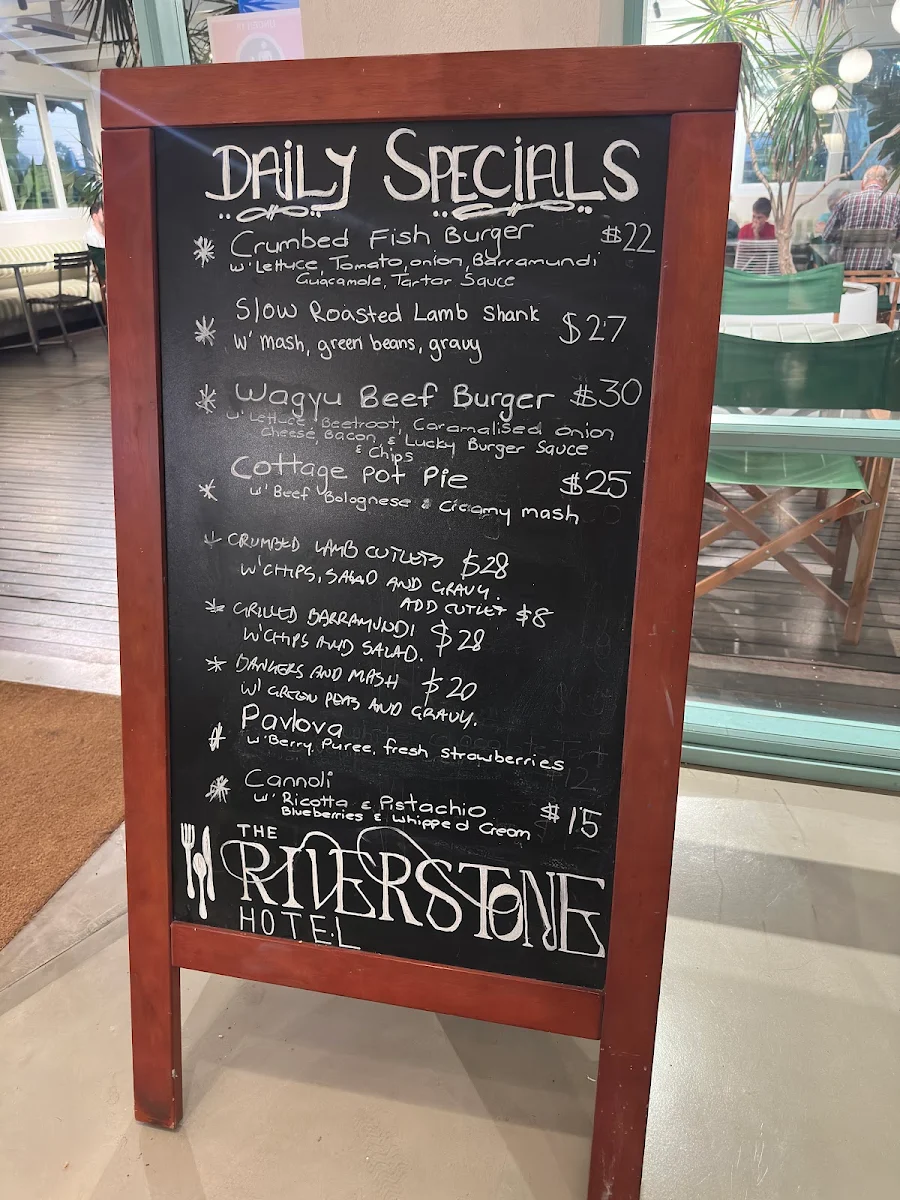 DAiLY SPECiALS
Crumbed Fish Burger $22
w' Lettuce, Tomato, onion, Barramundi
Guacamole, Tartar Sauce
Slow Roasted Lamb Shank
$27
w' mash, green beans, gravy
Wagyu Beef Burger $30
w' Lettuce, Beetroot, Caramalised onion
Cheese, Bacon, & Lucky Burger Sauce
& Chips
Cottage Pot Pie $25
w' Beef Bolognese & Creamy mash
CRUMBED LAMB CUTLETS $28
W' CHIPS, SALAD AND GRAVY.
ADD CUTLET $8
GRILLED BARRAMUNDI $28
W' CHIPS AND SALAD.
BANGERS AND MASH $20
W' GREEN PEAS AND GRAVY.
Pavlova
w' Berry Puree, fresh strawberries
Cannoli
w' Ricotta & Pistachio $15
Blueberries & Whipped Cream
THE
RIVERSTONE
HOTEL